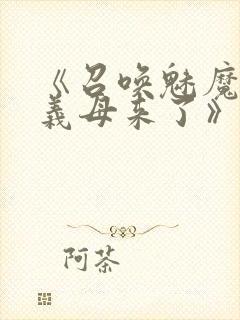 《召唤魅魔
義母来了》
阿茶